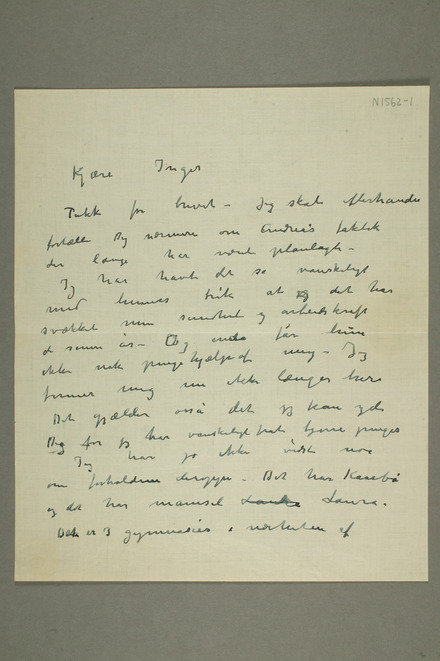 N1562-1
Kjære Inger
Takk for brevet – Jeg skal efterhaanden
fortælle Dig nærmere om Andreas taktik
der længe har været planlagt –
Jg har havt det så vanskeligt
med hennes bruk at det har
svækket min sundhet og arbeidskraft
de senere år – Og enda får hun
ikke nok pengehjælp af mig – Jg
formår mig nu ikke længer bare
Det gjælder også det jg kan yde
Dig for jg har vanskeligt for at tjene penger
Jeg har jo ikke vidst noe
om forholdene deroppe – Det har Kaasebø
og det har mamsel Laura.
Det er 3 gymnasier i nærheten af